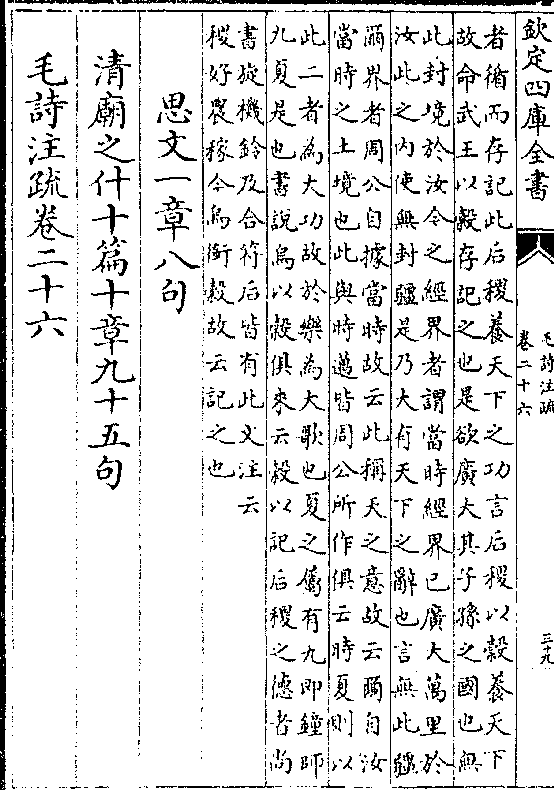 欽定四庫全書
毛詩注疏
卷二十六
三十九
者循而存記此后稷養天下之功言后稷以穀養天下
故命武王以穀存記之也是欲廣大其子孫之國也無
此封境於汝今之經界者謂當時經界已廣大萬里於
汝此之內使無封疆是乃大有天下之辭也言無此疆
爾界者周公自據當時故云此稱天之意故云爾自汝
當時之土境也此與時邁皆周公所作俱云時夏則以
此二者為大功故於樂為大歌也夏之屬有九即鐘師
九夏是也書說烏以穀俱來云穀以記后稷之德者尚
書旋機鈐及合符后皆有此文注云
稷好農稼今烏銜穀故云記之也
思文一章八句
清廟之什十篇十章九十五句
毛詩注疏卷二十六